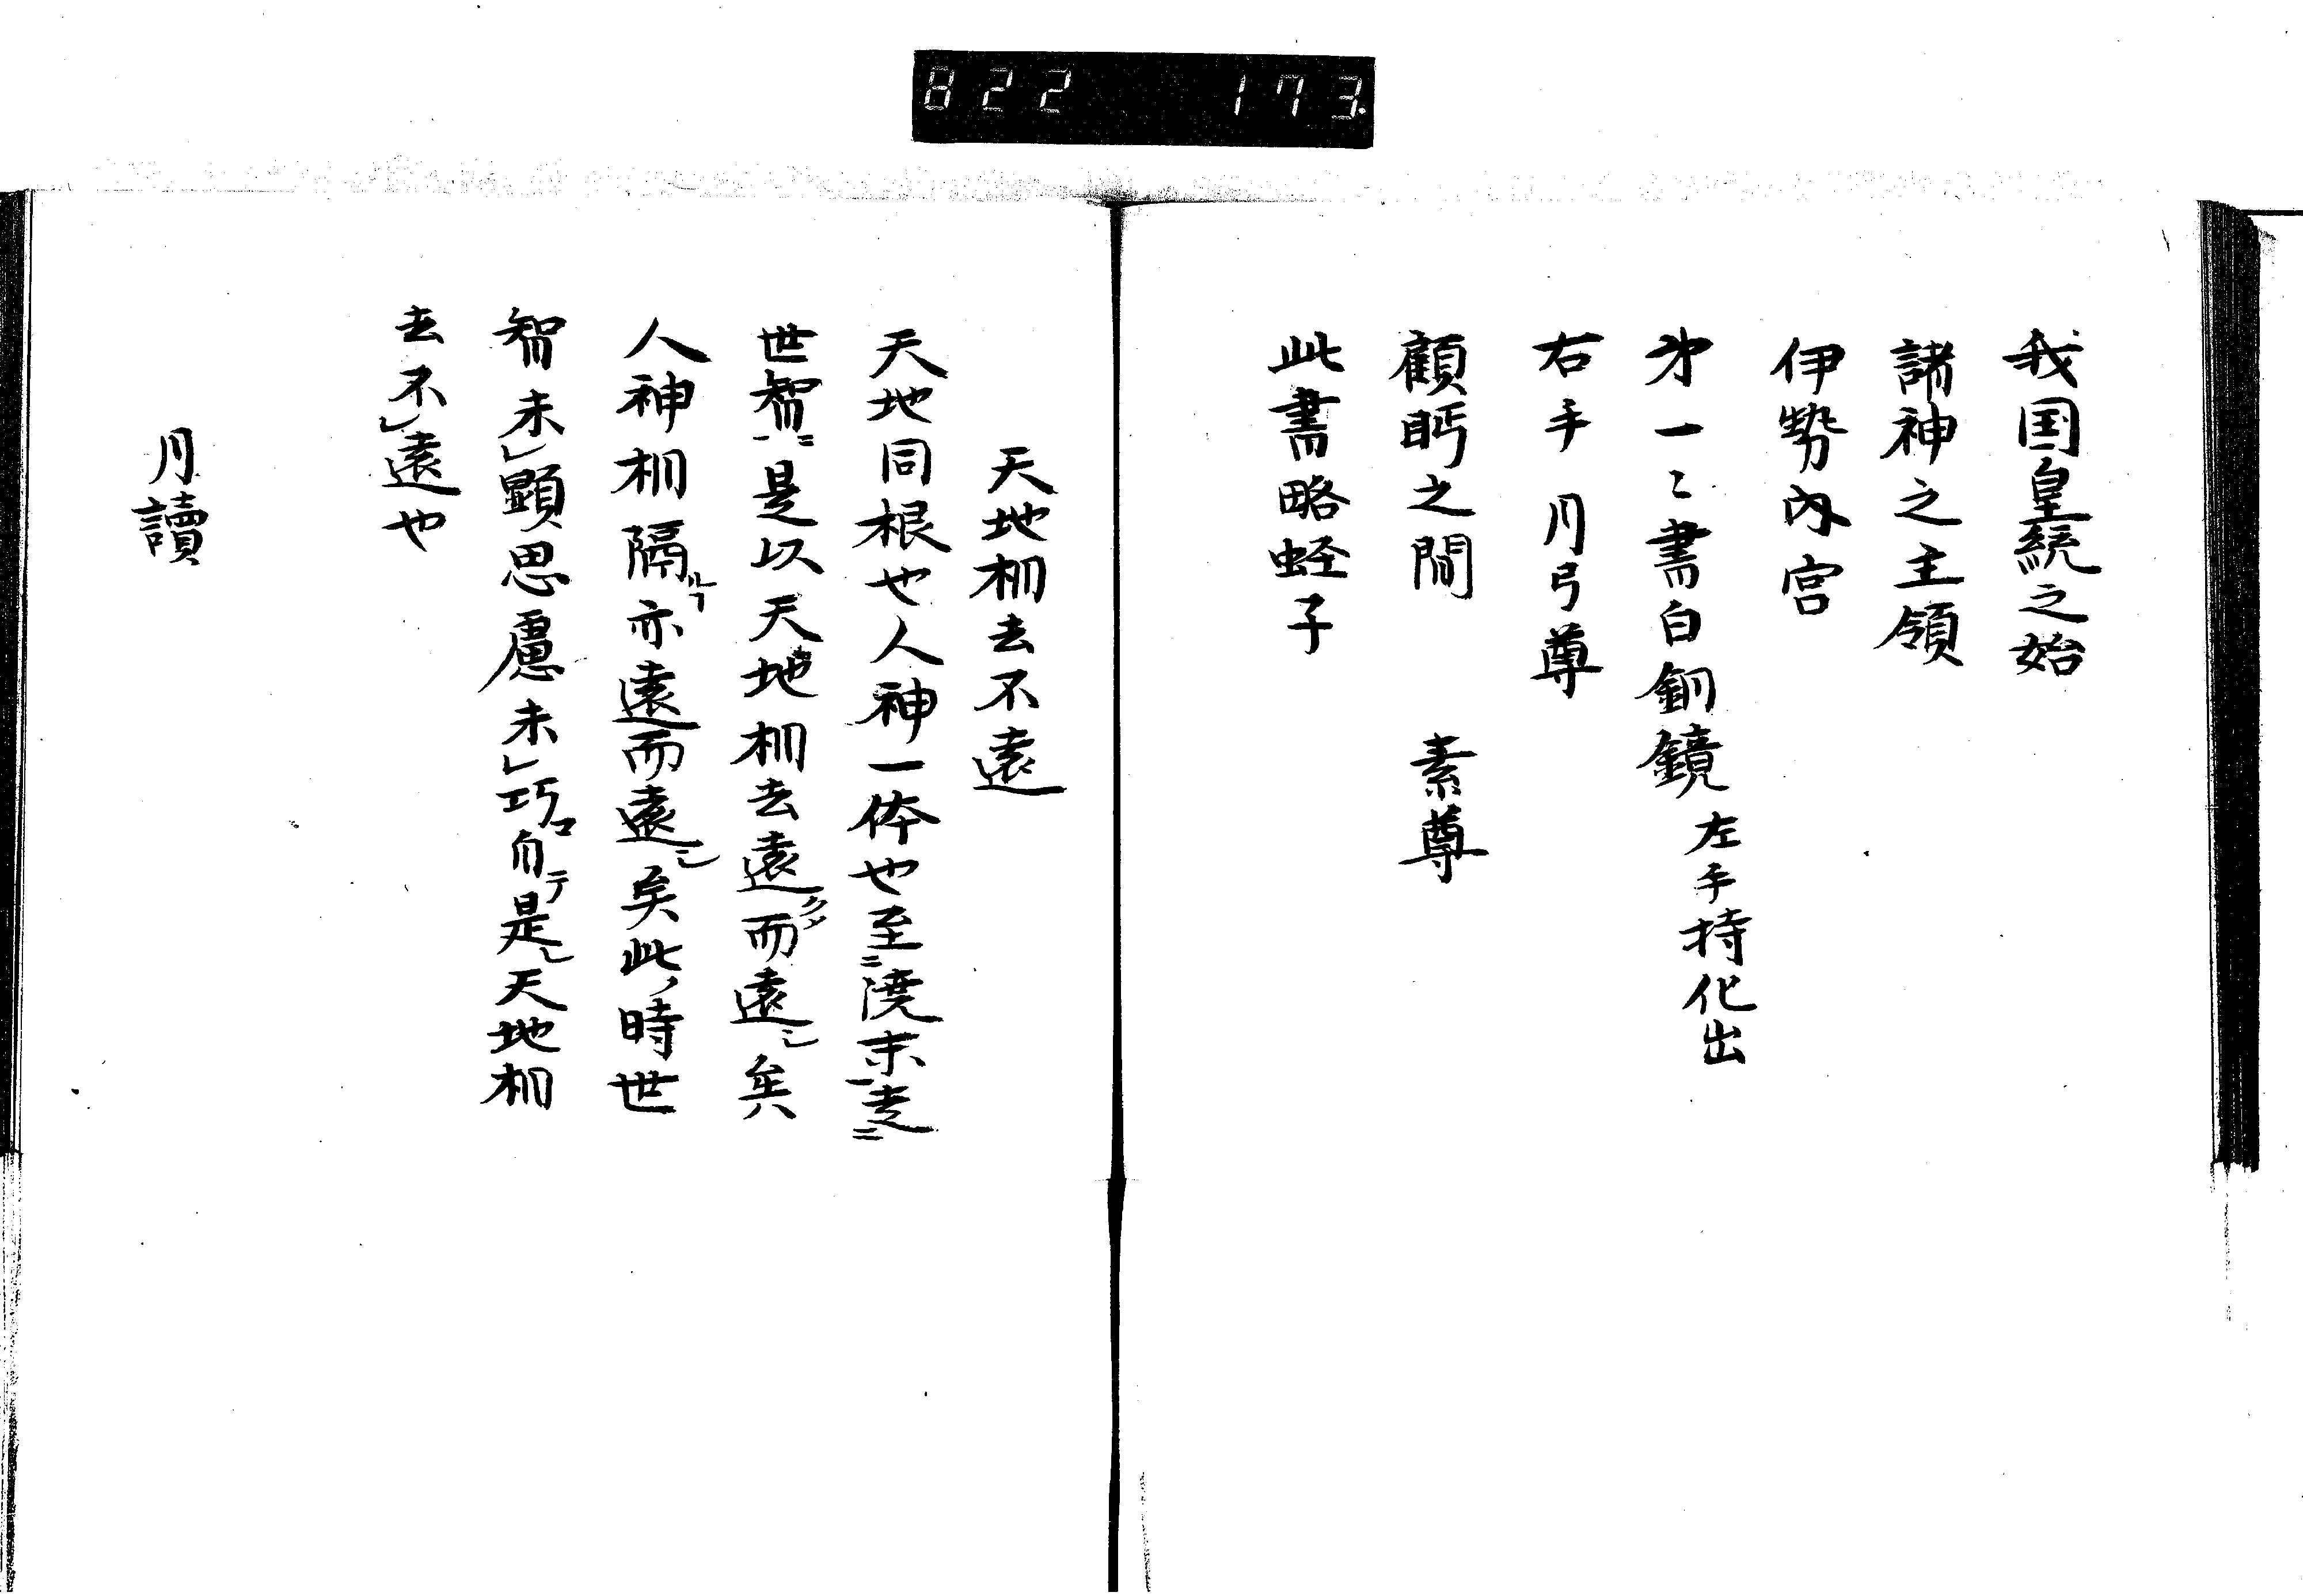 822 173.
我国皇統之始
諸神之主領
伊勢内宮
第一々書白銅鏡 左手持化出
右手 月弓尊
顧眄之間 素尊
此書略蛭子
天地相去不遠
天地同根也人神一体也至ニ澆末一走ニ
世智一ニ是以天地相去遠クメ而遠シ矣
人神相隔ルヿ亦遠而遠シ矣此ノ時世
智未レ顕思慮未レ巧ロ向テ是レ天地相
去不レ遠也
月讀